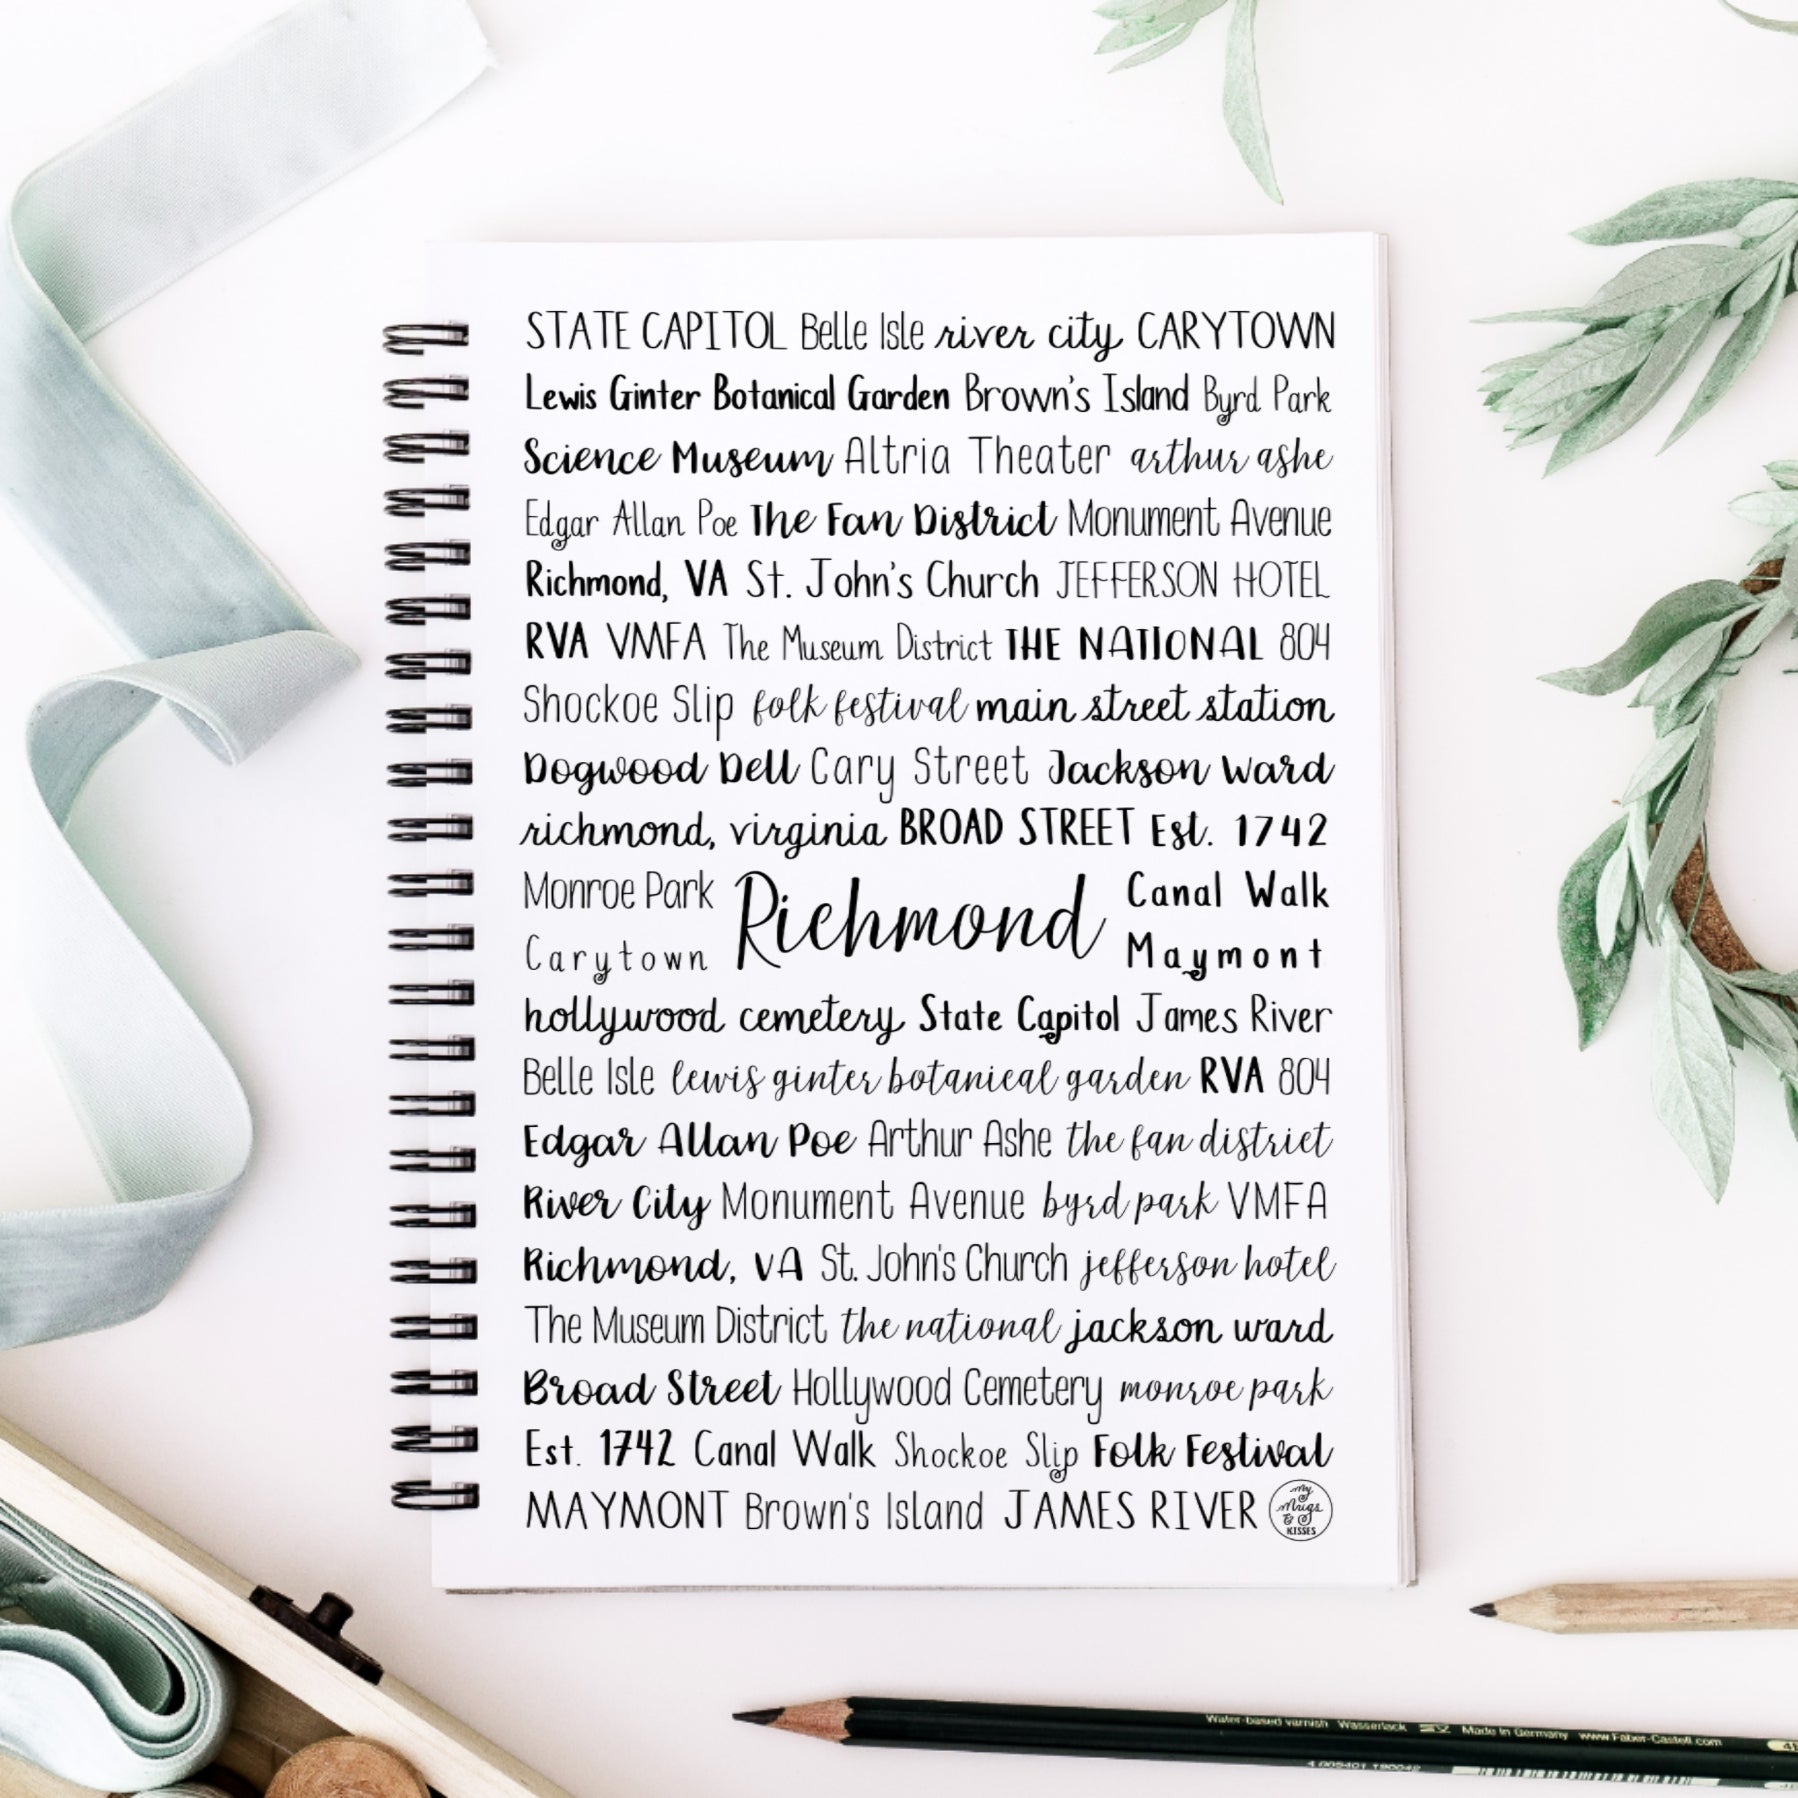 STATE CAPITOL Belle Isle river city CARYTOWN
Lewis Ginter Botanical Garden Brown's Island Byrd Park
Science Museum Altria Theater arthur ashe
Edgar Allan Poe The Fan District Monument Avenue
Richmond, VA St. John's Church JEFFERSON HOTEL
RVA VMFA The Museum District THE NATIONAL 804
Shockoe Slip folk festival main street station
Dogwood Dell Cary Street Jackson Ward
richmond, virginia BROAD STREET Est. 1742
Monroe Park Richmond Canal Walk
Carytown Maymont
hollywood cemetery State Capitol James River
Belle Isle lewis ginter botanical garden RVA 804
Edgar Allan Poe Arthur Ashe the fan district
River City Monument Avenue byrd park VMFA
Richmond, VA St. John's Church jefferson hotel
The Museum District the national jackson ward
Broad Street Hollywood Cemetery monroe park
Est. 1742 Canal Walk Shockoe Slip Folk Festival
MAYMONT Brown's Island JAMES RIVER
My
Mugs
&
KISSES
Water-based varnish Wasserlack Made in Germany www.Faber-Castell.com